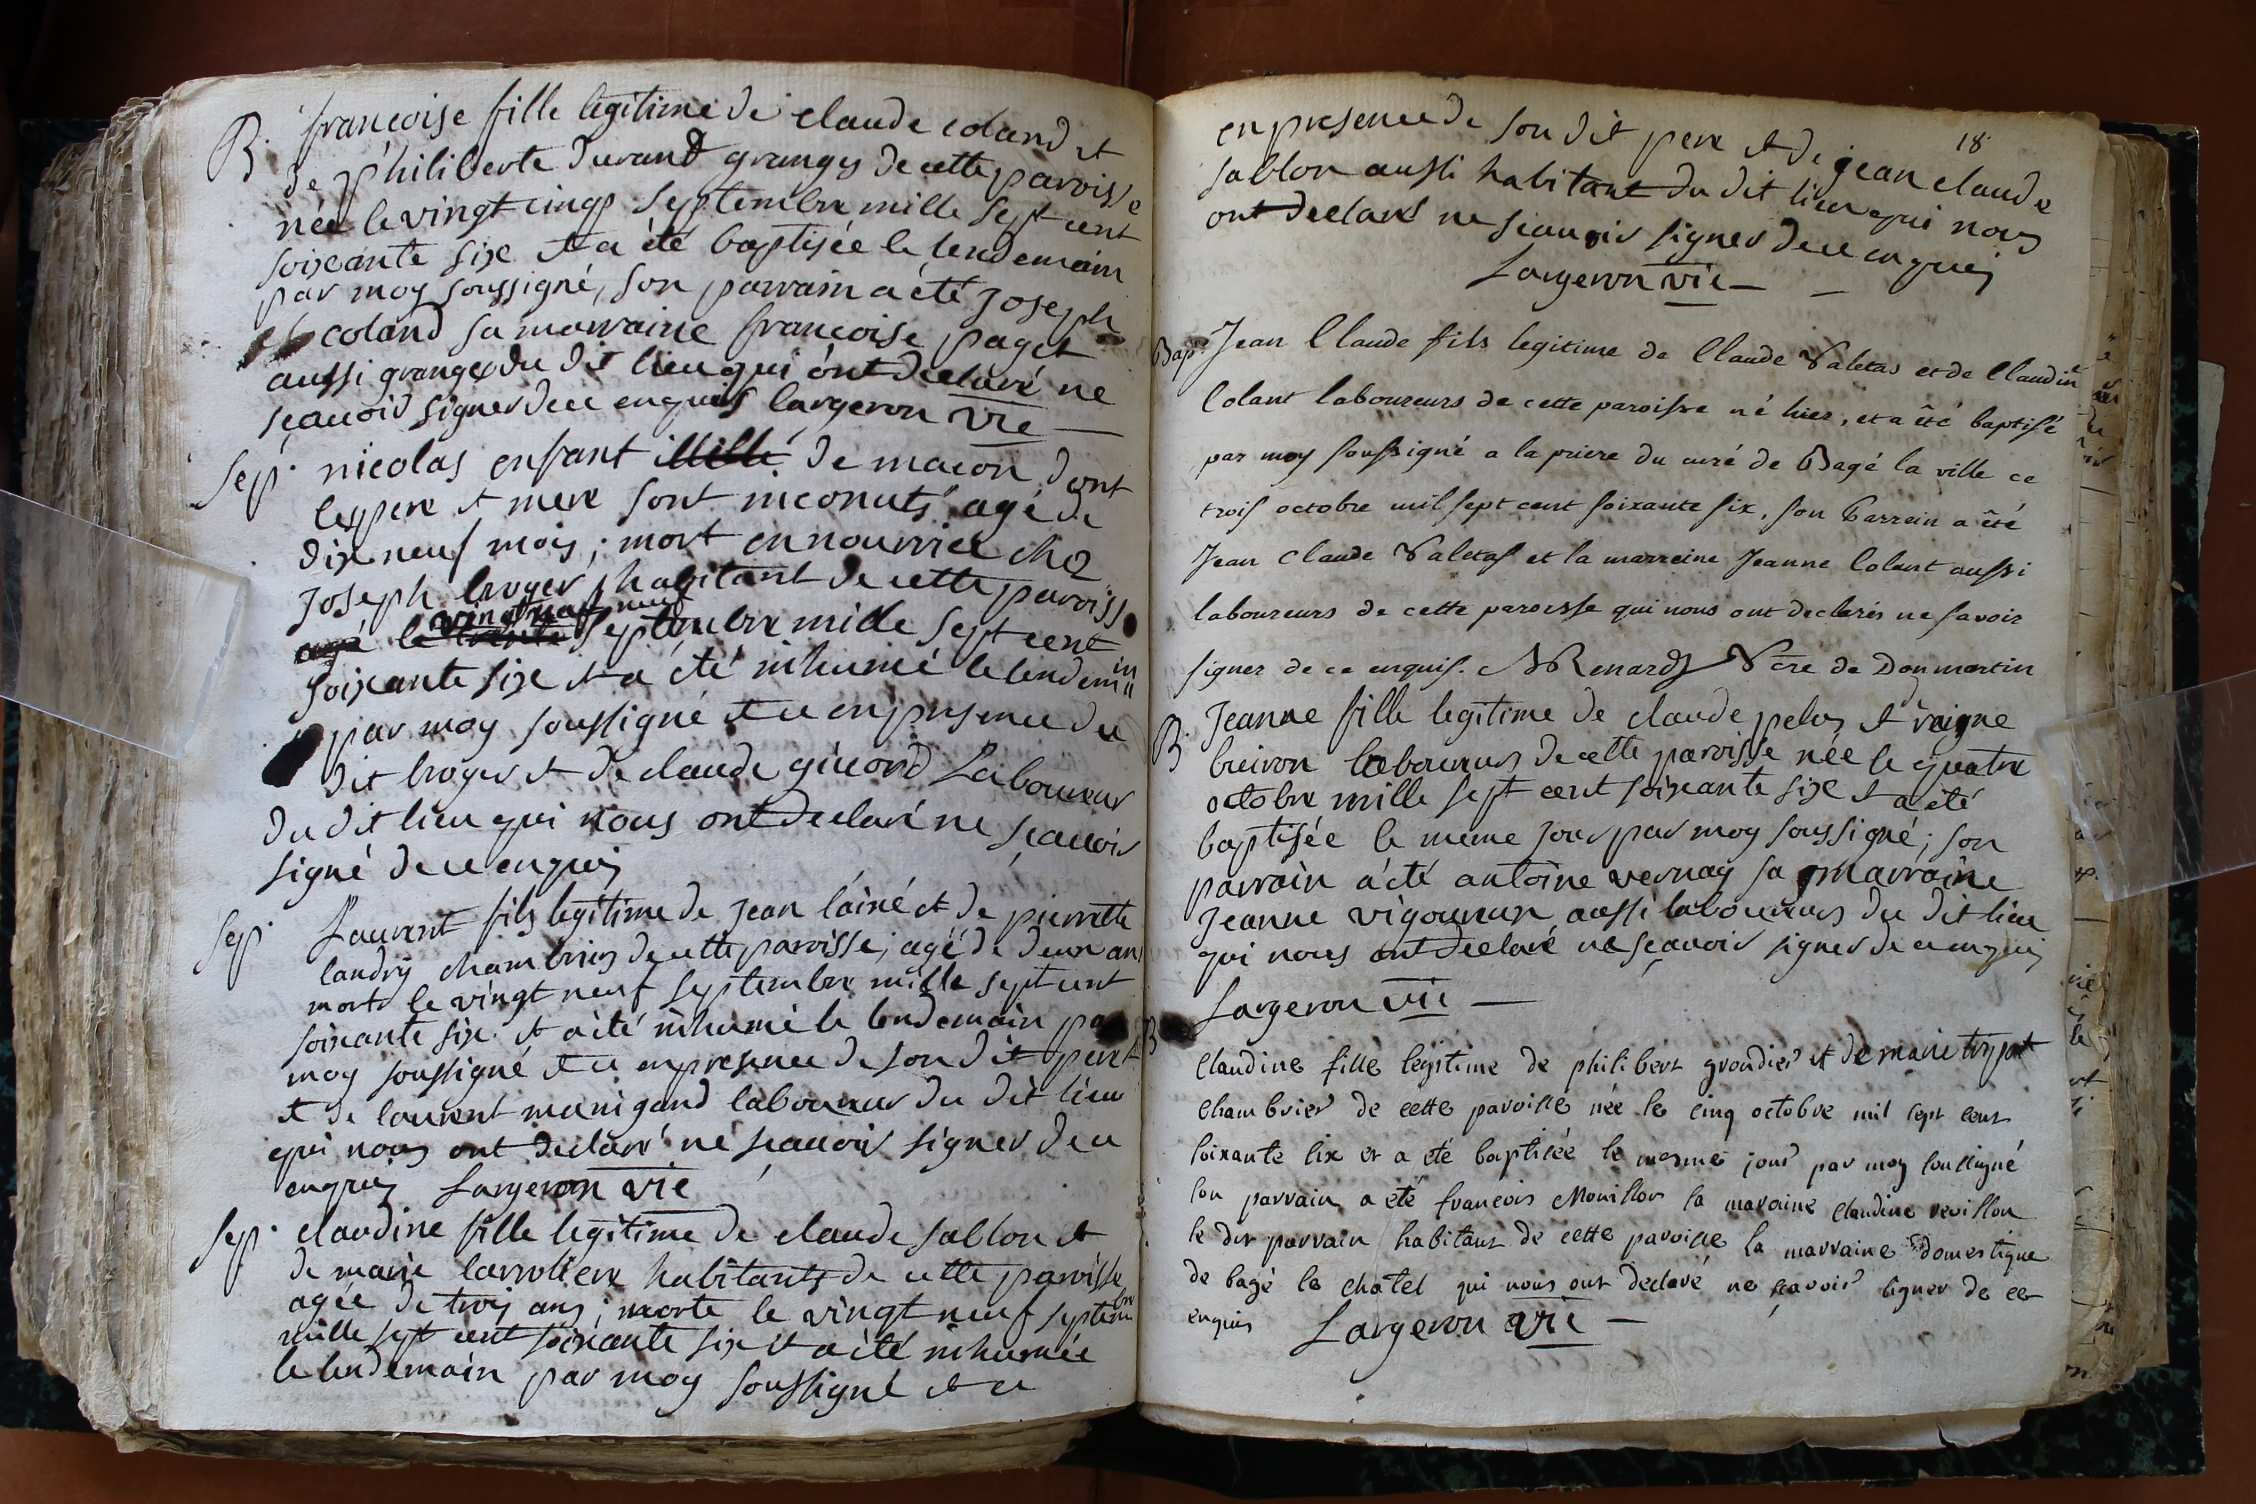 B. françoise fille legitime de claude coland et
de philiberte durand granges de cette paroisse
née le vingt cinq septembre mille sept cent
soixante six et a été baptisée le lendemain
par moy soussigné, son parrain a été joseph
coland sa marraine françoise paget
aussi granges du dit lieu qui ont declaré ne
sçauoir signer de ce enquis largeron vic
sep. nicolas enfant de macon dont
les pere et mere sont inconuts agé de
dix neuf mois, mort en nourrice chez
joseph broyer habitant de cette paroisse
le vingt neuf septembre mille sept cent
soixante six et a été inhumé le lendemain
par moy soussigné et ce en presence du
dit broyer et de claude Laboureur
du dit lieu qui nous ont declaré ne scauoir
signé de ce enquis
sep. Laurent fils legitime de jean lainé et de pierrette
landry chambriers de cette paroisse, agé de deux ans
mort le vingt neuf septembre mille sept cent
soixante six et a été inhumé le lendemain par
moy soussigné et ce en presence de son dit pere
et de laurent manigand laboureur du dit lieu
qui nous ont declaré ne scauoir signer de ce
enquis Largeron vic
sep. claudine fille legitime de claude sablon et
de marie habitants de cette paroisse
agée de trois ans, morte le vingt neuf septembre
mille sept cent soixante six et a été inhumée
le lendemain par moy soussigné et ce
18.
en presence de son dit pere et de jean claude
sablon aussi habitant du dit lieu qui nous
ont declaré ne scauoir signer de ce enquis
Largeron vic
Bap. Jean Claude fils legitime de Claude Valetas et de Claudine
Colant laboureurs de cette paroisse né hier, et a été baptisé
par moy soussigné a la priere du curé de Bagé la ville ce
trois octobre mil sept cent soixante six, son Parrain a été
Jean Claude Valetas et la marreine Jeanne Colant aussi
laboureurs de cette paroisse qui nous ont declarés ne savoir
signer de ce enquis. Renard Vcre de Donmartin
B. Jeanne fille legitime de claude pelus et
buiron laboureurs de cette paroisse née le quatre
octobre mille sept cent soixante six et a été
baptisée le meme jour par moy soussigné; son
parrain a été antoine vernay sa marraine
jeanne vigoureux aussi laboureurs du dit lieu
qui nous ont declaré ne sçauoir signer de ce enquis
Largeron vic
B Claudine fille legitime de philibert grondier et de marie
Chambrier de cette paroisse née le cinq octobre mil sept cent
soixante six et a été baptisée le mesme jour par moy soussigné
son parrain a été francois Mouillon sa maraine claudine revillon
le dit parrain habitant de cette paroisse la marraine domestique
de bagé le chatel qui nous ont declaré ne sçavoir signer de ce
enquis Largeron vic